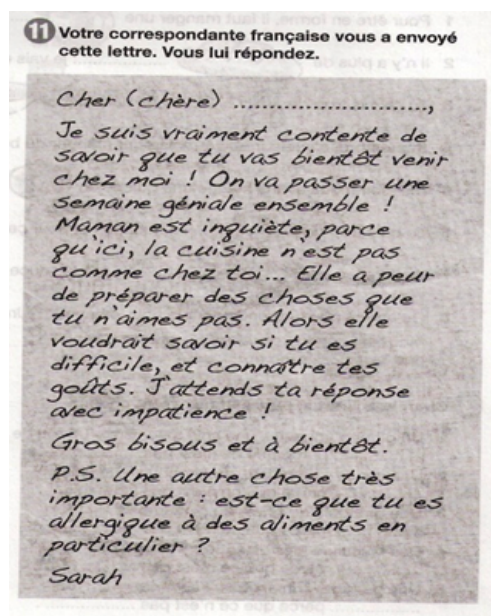 11 Votre correspondante française vous a envoyé
cette lettre. Vous lui répondez.
Cher (chère) ..............................,
Je suis vraiment contente de
savoir que tu vas bientôt venir
chez moi ! On va passer une
semaine géniale ensemble !
Maman est inquiète, parce
qu'ici, la cuisine n'est pas
comme chez toi... Elle a peur
de préparer des choses que
tu n'aimes pas. Alors elle
voudrait savoir si tu es
difficile, et connaître tes
goûts. J'attends ta réponse
avec impatience !
Gros bisous et à bientôt.
P.S. Une autre chose très
importante : est-ce que tu es
allergique à des aliments en
particulier ?
Sarah